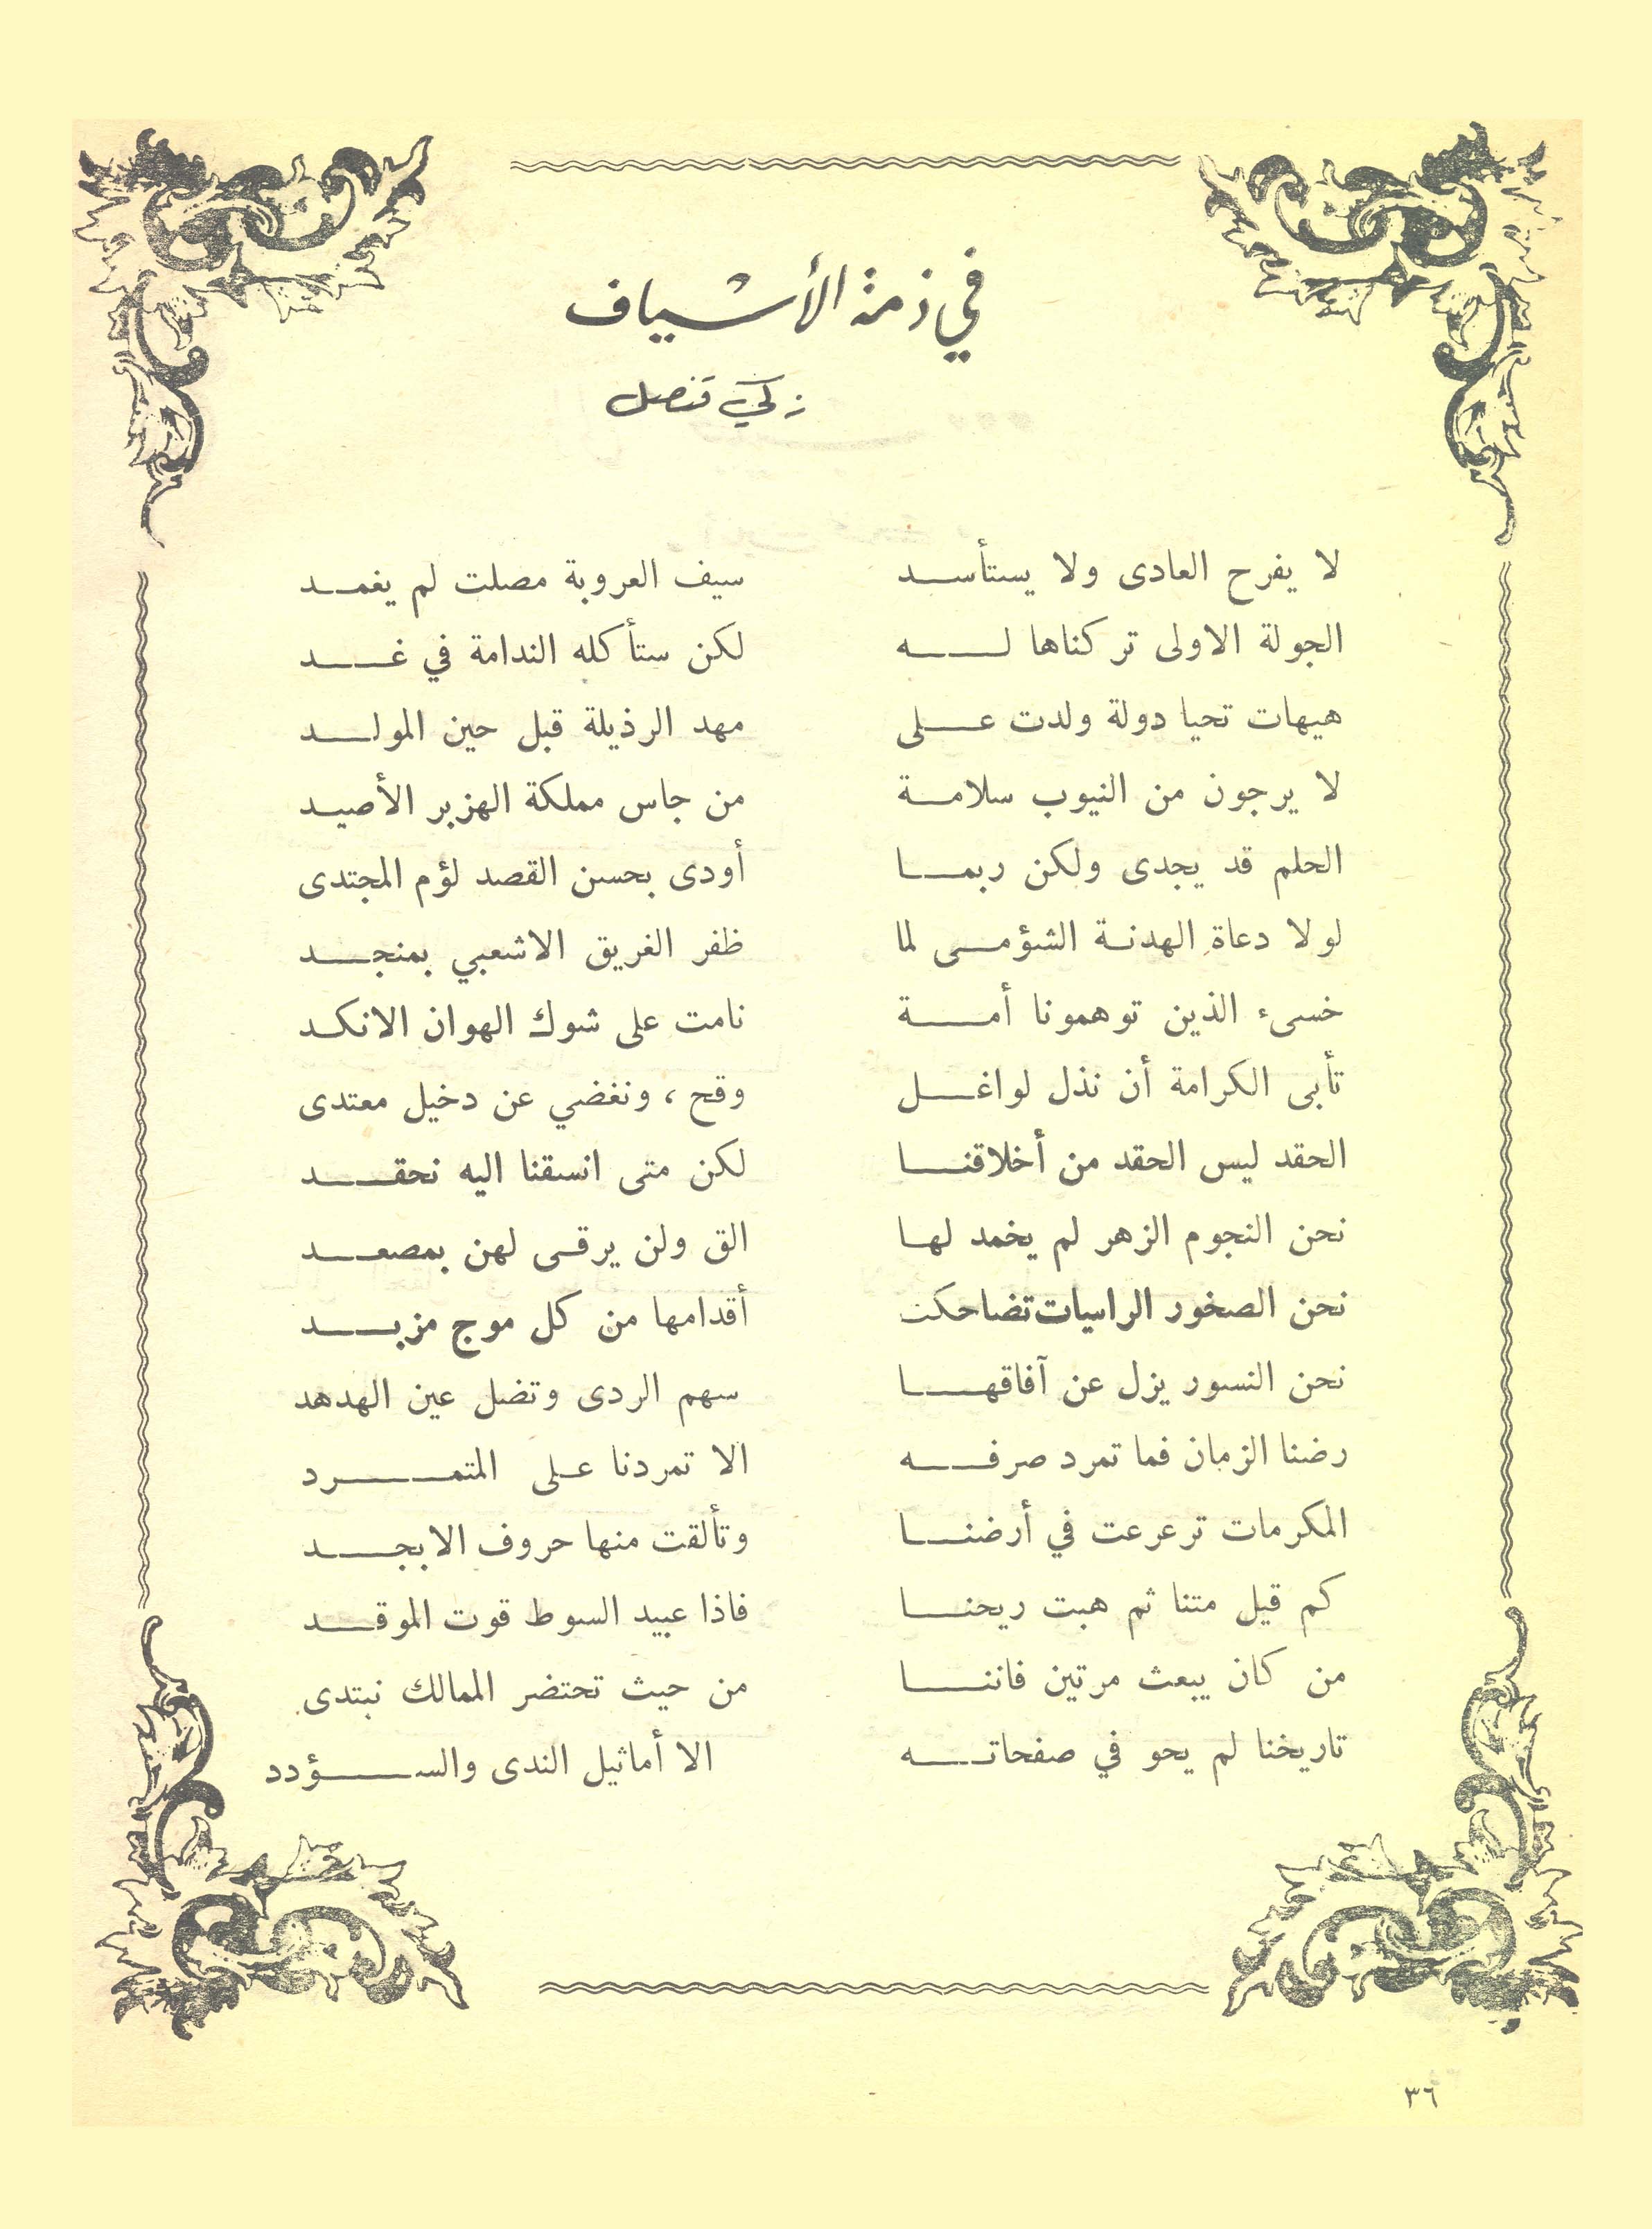 في ذمة الأسياف
زكي قنصل
لا يفرح العادى ولا يستأسد سيف العروبة مصلت لم يغمد
الجولة الاولى تركناها له لكن ستأكله الندامة في غد
هيهات تحيا دولة ولدت على مهد الرذيلة قبل حين المولد
لا يرجون من النيوب سلامة من جاس مملكة الهزبر الأصيد
الحلم قد يجدى ولكن ربما أودى بحسن القصد لؤم المجتدى
لولا دعاة الهدنة الشؤمى لما ظفر الغريق الاشعبي بمنجد
خسىء الذين توهمونا أمة نامت على شوك الهوان الانكد
تأبى الكرامة أن نذل لواغل وقح ، ونغضي عن دخيل معتدى
الحقد ليس الحقد من أخلاقنا لكن متى انسقنا اليه نحقد
نحن النجوم الزهر لم يخمد لها الق ولن يرقى لهن بمصعد
نحن الصخور الراسيات تضاحكت أقدامها من كل موج مزبد
نحن النسور يزل عن آفاقها سهم الردى وتضل عين الهدهد
رضنا الزمان فما تمرد صرفه الا تمردنا على المتمرد
المكرمات ترعرعت في أرضنا وتألقت منها حروف الابجد
كم قيل متنا ثم هبت ريحنا فاذا عبيد السوط قوت الموقد
من كان يبعث مرتين فاننا من حيث تحتضر الممالك نبتدى
تاريخنا لم يحو في صفحاته الا أماثيل الندى والسؤدد
٣٦